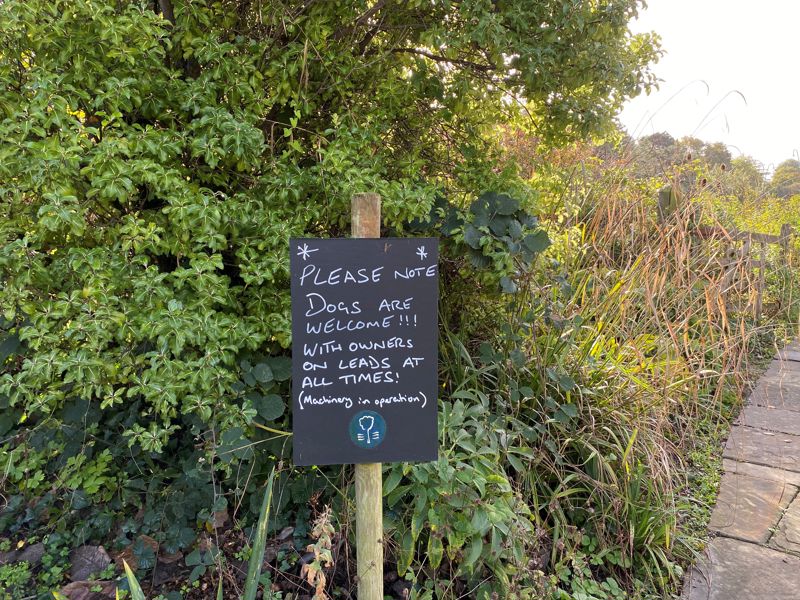 * *
PLEASE NOTE
DOGS ARE
WELCOME!!!
WITH OWNERS
ON LEADS AT
ALL TIMES!
(Machinery in operation)